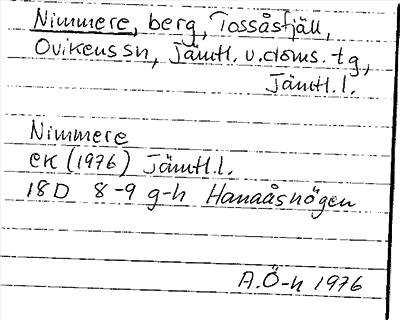 Nimmere, berg, Tossåsfjäll,
Ovikens sn, Jämtl. v. doms. tg,
Jämtl. l.
Nimmere
ek (1976) Jämtl. l.
18D 8-9 g-h Hanaåsnögen
A.Ö-n 1976